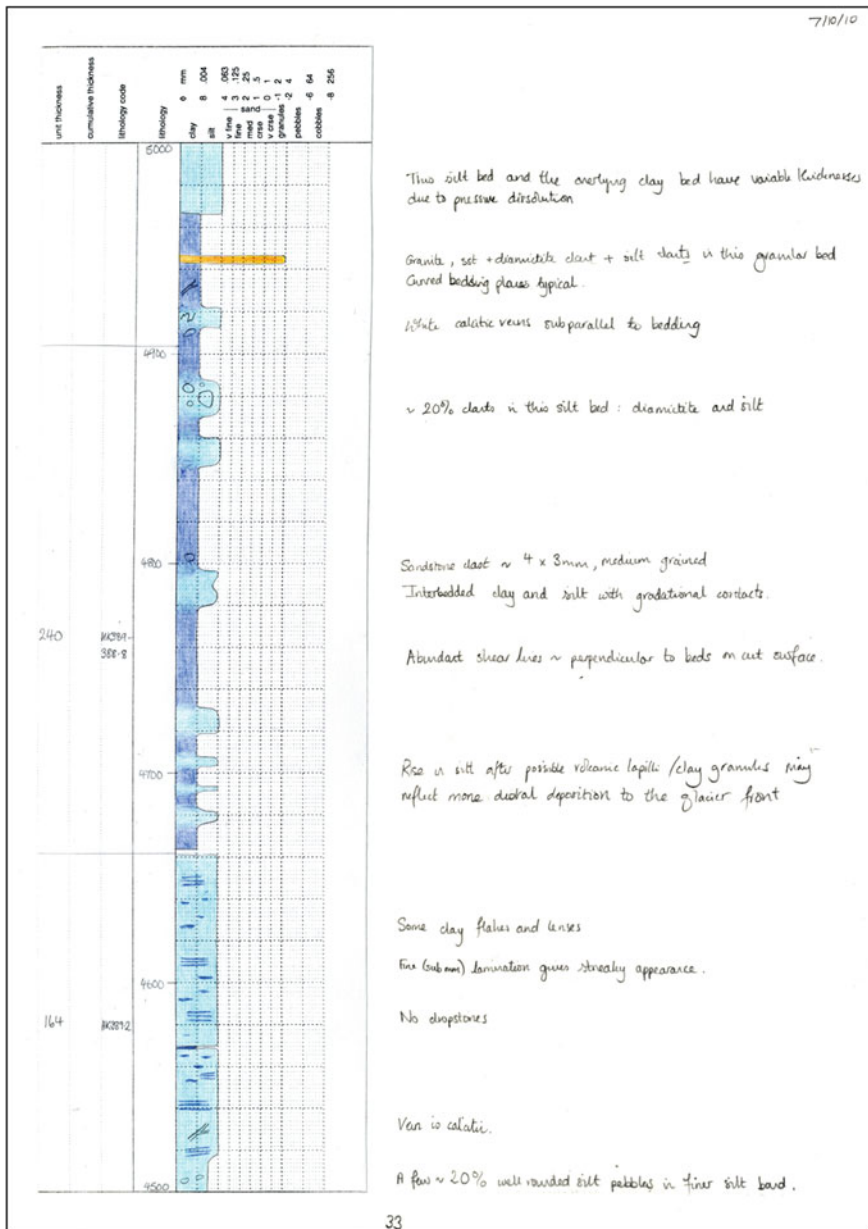 7/10/10
unit thickness
cumulative thickness
lithology code
lithology
ϕ mm
clay 8 .004
silt
v fine 4 .063
fine 3 .125
med 2 .25
sand
crse 1 .5
v crse 0 1
granules -1 2
-2 4
pebbles
-6 64
cobbles
-8 256
5000
This silt bed and the overlying clay bed have variable thicknesses
due to pressure dissolution
Granite, sst + diamictite clast + silt clasts in this granular bed
Curved bedding planes typical.
White calcitic veins subparallel to bedding
4900
~ 20% clasts in this silt bed : diamictite and silt
4800
Sandstone clast ~ 4 x 3mm, medium grained
Interbedded clay and silt with gradational contacts.
240
388-8
Abundant shear lines ~ perpendicular to beds on cut surface.
4700
Rise in silt after possible volcanic lapilli / clay granules may
reflect more distal deposition to the glacier front
Some clay flakes and lenses
Fine (sub mm) lamination gives streaky appearance.
4600
164
No dropstones
Vein is calcitic.
A few ~ 20% well rounded silt pebbles in finer silt band.
4500
33